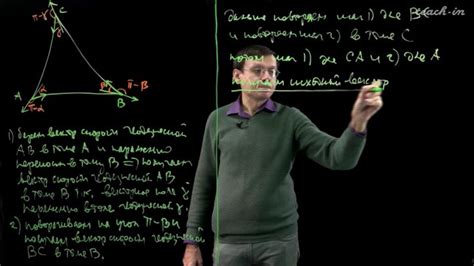 teach-in
π-γ
C
γ
A
π-α
α
β
B
π-β
1) берем вектор скорости геодезической
AB в точке A и параллельно
переносим в точку B ⇒ получаем
вектор скорости геодезической AB
в точке B т.к. векторное поле γ̇
параллельно вдоль геодезической γ.
2) поворачиваем на угол π-β и
получаем вектор скорости геодезической
BC в точке B.
далее повторяем шаг 1) для BC
и повторяем 2) в точке C
потом шаг 1) для CA и 2) для A
получаем исходный вектор